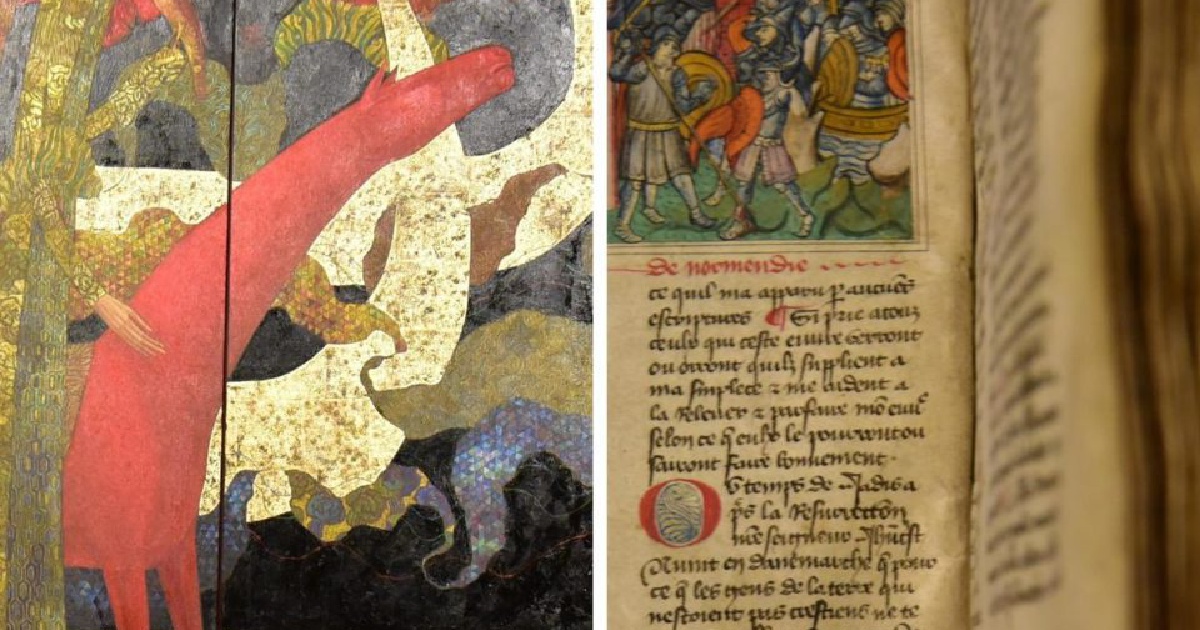 de normendie
ce quil ma apparu p aucues
escriptures ¶ Si prie a tous
ceulx qui ceste euure verront
ou orront quilz supplient a
ma simplece z me aident a
la Releuer z parfaire mō euur
selon ce q eulx le pourront ou
sauront faire bonnement.
OV temps de Jadis a
pͥs la Resurrection
nrē seigneur
Auint en danemarche q pour
ce q les gens de la terre qui
nestoient pas crestiens ne te